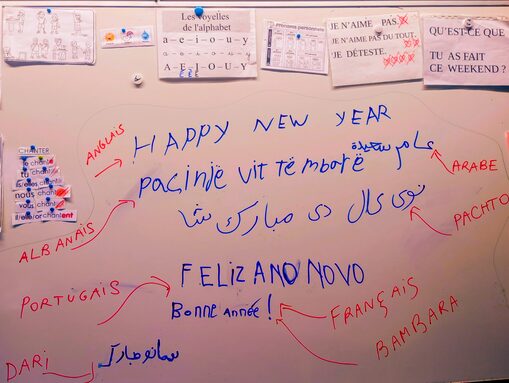 Les voyelles
de l'alphabet
a - e - i - o - u - y
A - E - I - O - U - Y
Pronoms personnels
JE N'AIME PAS.
JE N'AIME PAS DU TOUT.
JE DÉTESTE.
QU'EST-CE QUE
TU AS FAIT
CE WEEKEND ?
CHANTER
je chante
tu chantes
nous chant
vous chant
ils/elles chantent
ANGLAIS
HAPPY NEW YEAR
PAÇINJË VIT TË MBARË
عام سعيد
ARABE
ALBANAIS
نوی کال دی مبارک شا
PACHTO
PORTUGAIS
FELIZ ANO NOVO
BONNE ANNÉE !
FRANÇAIS
BAMBARA
DARI